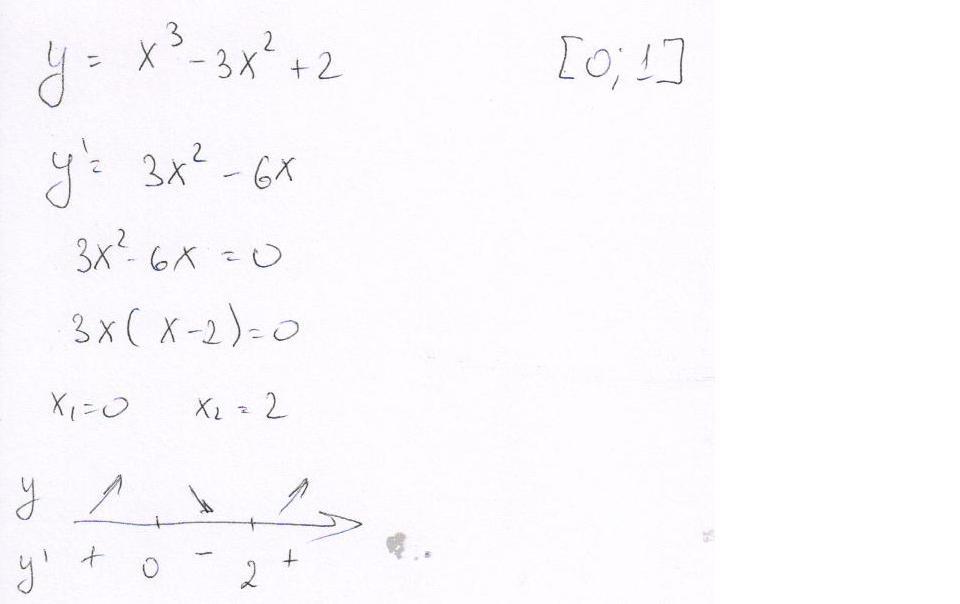 y = x³ - 3x² + 2 [0; 1]
y' = 3x² - 6x
3x² - 6x = 0
3x(x - 2) = 0
x₁ = 0 x₂ = 2
y ↗ ↘ ↗
y' + 0 - 2 +